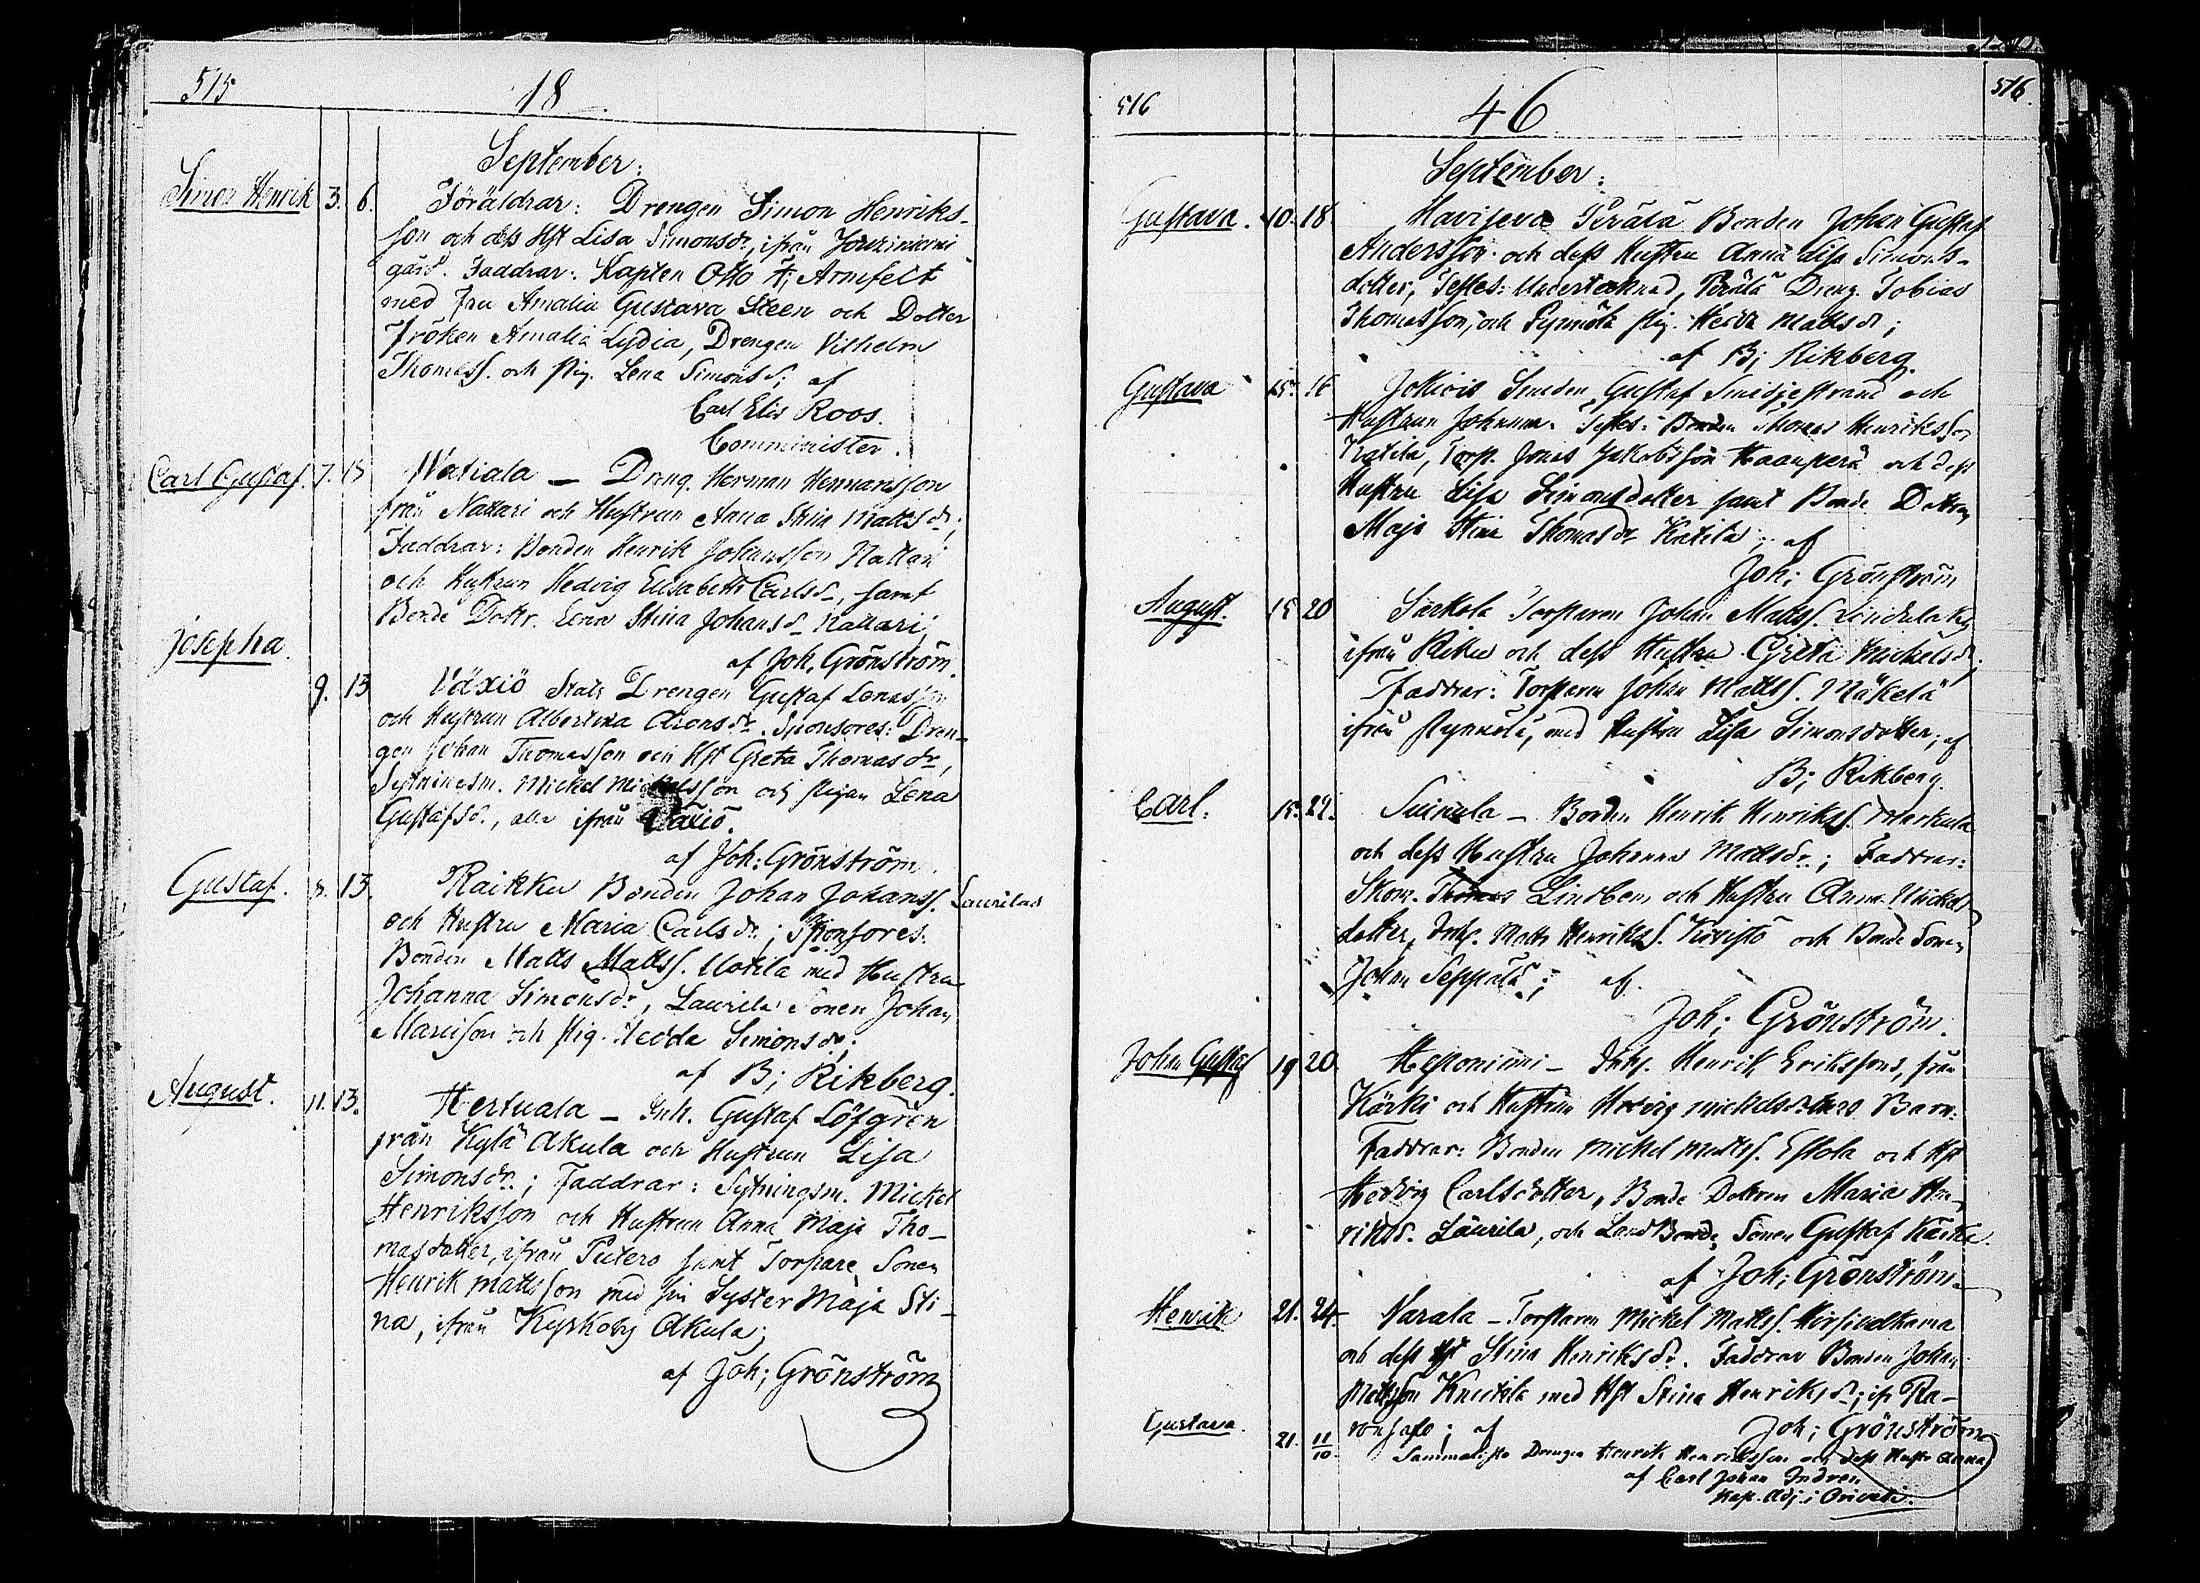 515
18
September:
Simon Henrik 3. 6. Föräldrar: Drengen Simon Henriks-
son och dess Hst Lisa Simonsdr, ifrån
gård. Faddrar: Kapten Otto Armfelt
med Fru Amalia Gustava Steen och Dotter
Fröken Amalia Lydia, Drengen Vilhelm
Thomass. och Pig. Lena Simonsd; af
Carl Elis Roos.
Comminister.
Carl Gustaf. 7. 13 Watiala — Dreng. Herman Hermansson
från Nattari och Hustrun Anna Stina Mattsdr;
Faddrar: Bonden Henrik Johansson Nattari
och Hustrun Hedvig Elisabeth Carlsd, samt
Bonde Dottr. Lena Stina Johansd Nattari;
af Joh, Grönström.
Josepha. 9. 13 Växiö Stats Drengen Gustaf
och Hustrun Albertina Aronsdr. Sponsores: Dren-
gen Johan Thomasson och Hst Greta Thomasdr,
Sytningsm. Mickel Mickelsson och pigan Lena
Gustafsd., alla ifrån Växiö.
af Joh: Grönström.
Gustaf. 8. 13. Raikku Bonden Johan Johanss. Laurilas
och Hustru Maria Carlsdr; Sponsores:
Bonden Matts Mattss. Uotila med Hustru
Johanna Simonsdr, Laurila Sonen Johan
och Pig. Hedda Simonsdr;
af B; Rikberg.
August. 11. 13. Hertuala — Inh. Gustaf Löfgrén
från Kylä Akula och Hustrun Lisa
Simonsdr.; Faddrar: Sytningsm. Mickel
Henriksson och Hustrun Anna Maja Tho-
masdotter, ifrån Putero samt Torpare Sonen
Henrik Mattsson med sin Syster Maja Sti-
na, ifrån Kyrkoby Akula;
af Joh; Grönström
516
46
516.
September:
Gustava. 10. 18. Havisevo Perälä Bonden Johan Gustaf
Andersson och dess Hustru Anna Lisa Simons-
dotter; Testes: Undertecknad, Perälä Dreng. Tobias
Thomasson, och Pynnölä pig. Hedda Mattsd;
af B; Rikberg.
Gustava 15. 16 Jokiois Smeden Gustaf Smidjestrand och
Hustrun Johanna. Testes: Bonden Thomas Henriksson
Katila, Torp. Jonas Jakobsson Haanperä och dess
Hustru Lisa Simonsdotter samt Bonde Dottren
Maja Stina Thomasdr Katila; af
Joh; Grönström
August. 15 20 Sarkola Torparen Johan Mattss.
ifrån Riku och dess Hustru Greta Mickelsd;
Faddrar: Torparen Johan Mattss. Mäkelä
ifrån Pynnölä, med Hustru Lisa Simonsdotter; af
B; Rikberg.
Carl. 15. 22. Suinula — Bonden Henrik Henrikss. Markula
och dess Hustru Johanna Mattsdr.; Faddrar:
Skom. Thomas Lindberg och Hustru Anna Mickels
dotter, Inhs. Matts Henrikss. Kivistö och Bonde Sonen
Johan Seppälä; af
Joh; Grönström.
Johan Gustaf 19 20. Heponiemi — Inhs. Henrik Erikssons, från
Kärki och Hustrun Hedvig Mickelsdotters Barn.
Faddrar: Bonden Mickel Mattss. Eskola och Hst
Hedvig Carlsdotter, Bonde Dottren Maria Hen-
riksd. Laurila, och LandBonde Sonen Gustaf
af Joh; Grönström.
Henrik 21. 24. Narala — Torparen Mickel Mattss.
och dess Hst Stina Henriksdr. Faddrar Bonden Johan
Mattsson Knuutila med Hst Stina Henriksdr; ifr Ra-
vonsalo; af Joh; Grönström
Gustava. 21. 11/10. Sammalisto Drengen Henrik Henriksson och dess Hustr Anna
af Carl Johan Indren
Kap. Adj. i Orivesi.